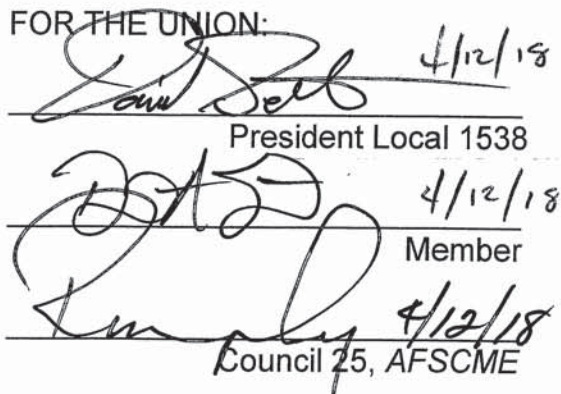 FOR THE UNION:
4/12/18
President Local 1538
4/12/18
Member
4/12/18
Council 25, AFSCME